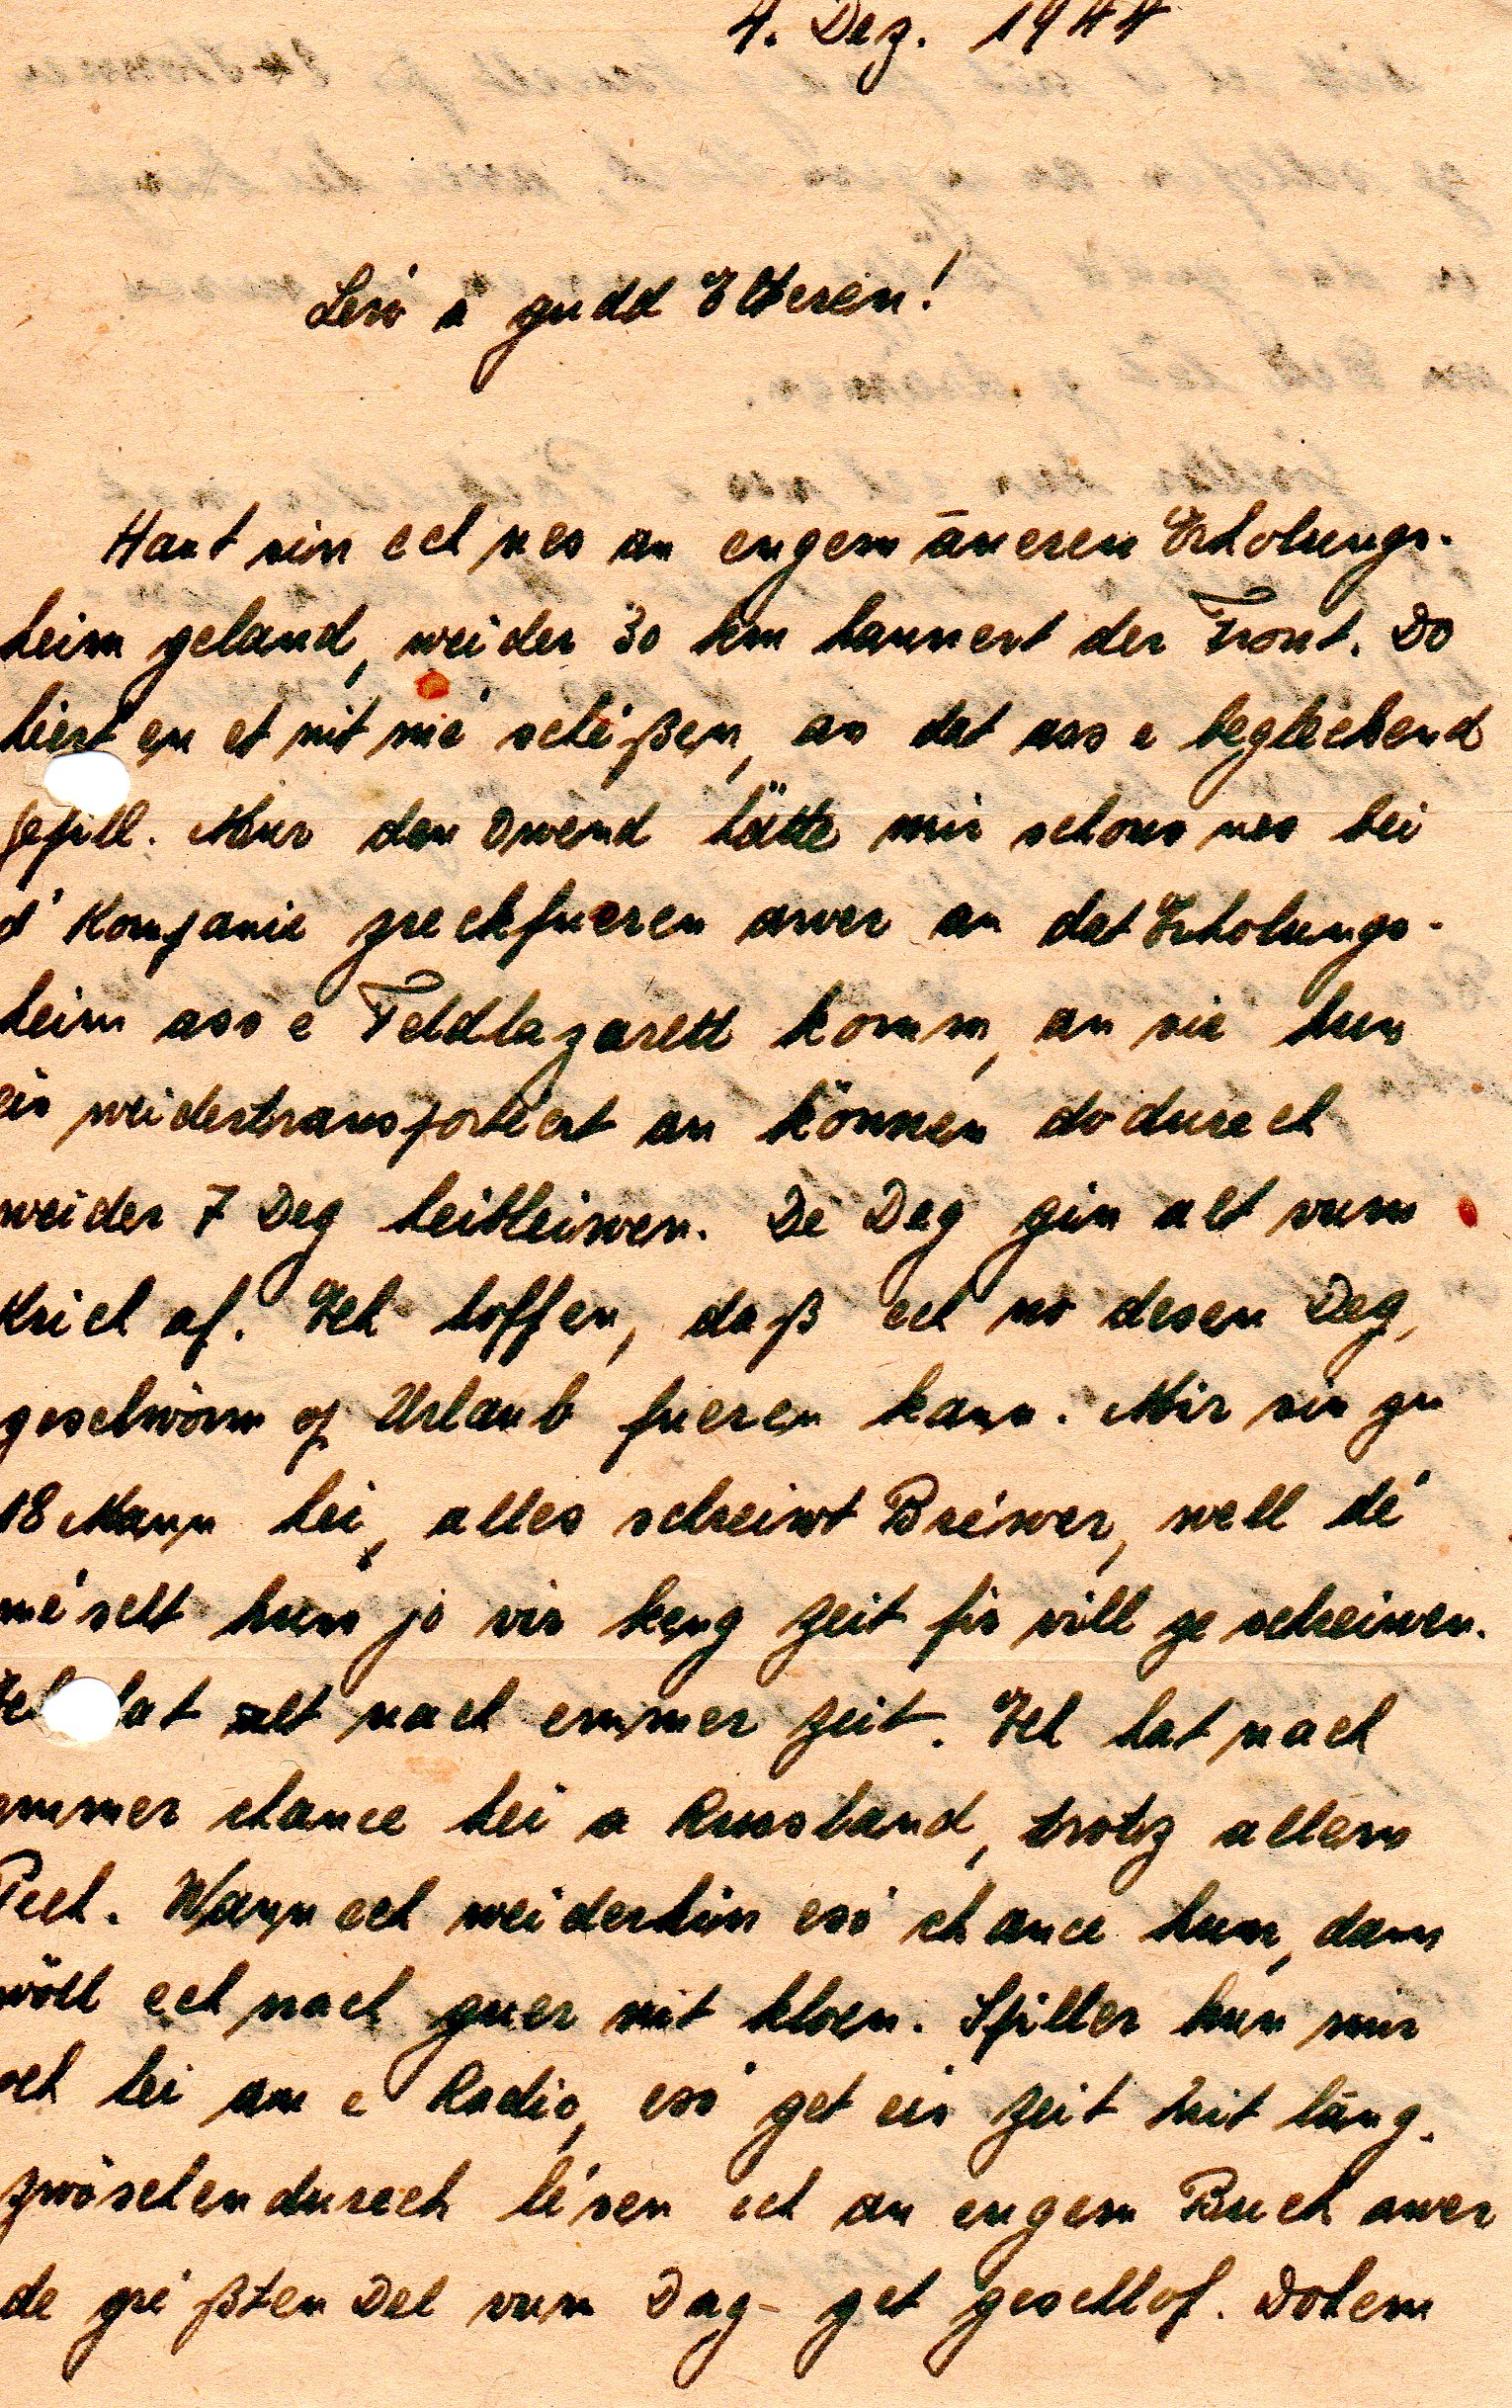 4. Dez. 1944
Leiw a gudd Elteren!
Haut sin ech nes an engem äneren Erholungs-
heim geland, weider 30 km hannert der Front. Do
hiert en et nit mé schéßen, an dat ass e begléckend
Gefill. Mur den Owend hätte mir schons nes bei
d' Kompanie zreckfueren awer an dat Erholungs-
heim ass e Feldlazarett komm, an sie hun
eis weidertransportéert an können dodurech
weider 7 Deg heibleiwen. Dé Deg gin alt vum
Krich af. Ech hoffen, daß ech no desen Deg,
geschwönn op Urlaub fueren kann. Mir sin zu
18 Mann hei, alles schreiwt Bréiwer, well dé
méscht hun jo vir keng Zeit fir vill ze schreiwen.
Ech hat alt nach emmer Zeit. Ech hat nach
emmer chance hei a Russland, trotz allem
Pech. Wann ech weiderhin esó chance hun, dann
wöll ech nach guer nit kloen. Spiller hun mir
och hei an e Radio, esó get eis Zeit nit läng.
Zwöschendurech lésen ech an engem Buch awer
de gréßten Del vum Dag get geschlof. Dohem